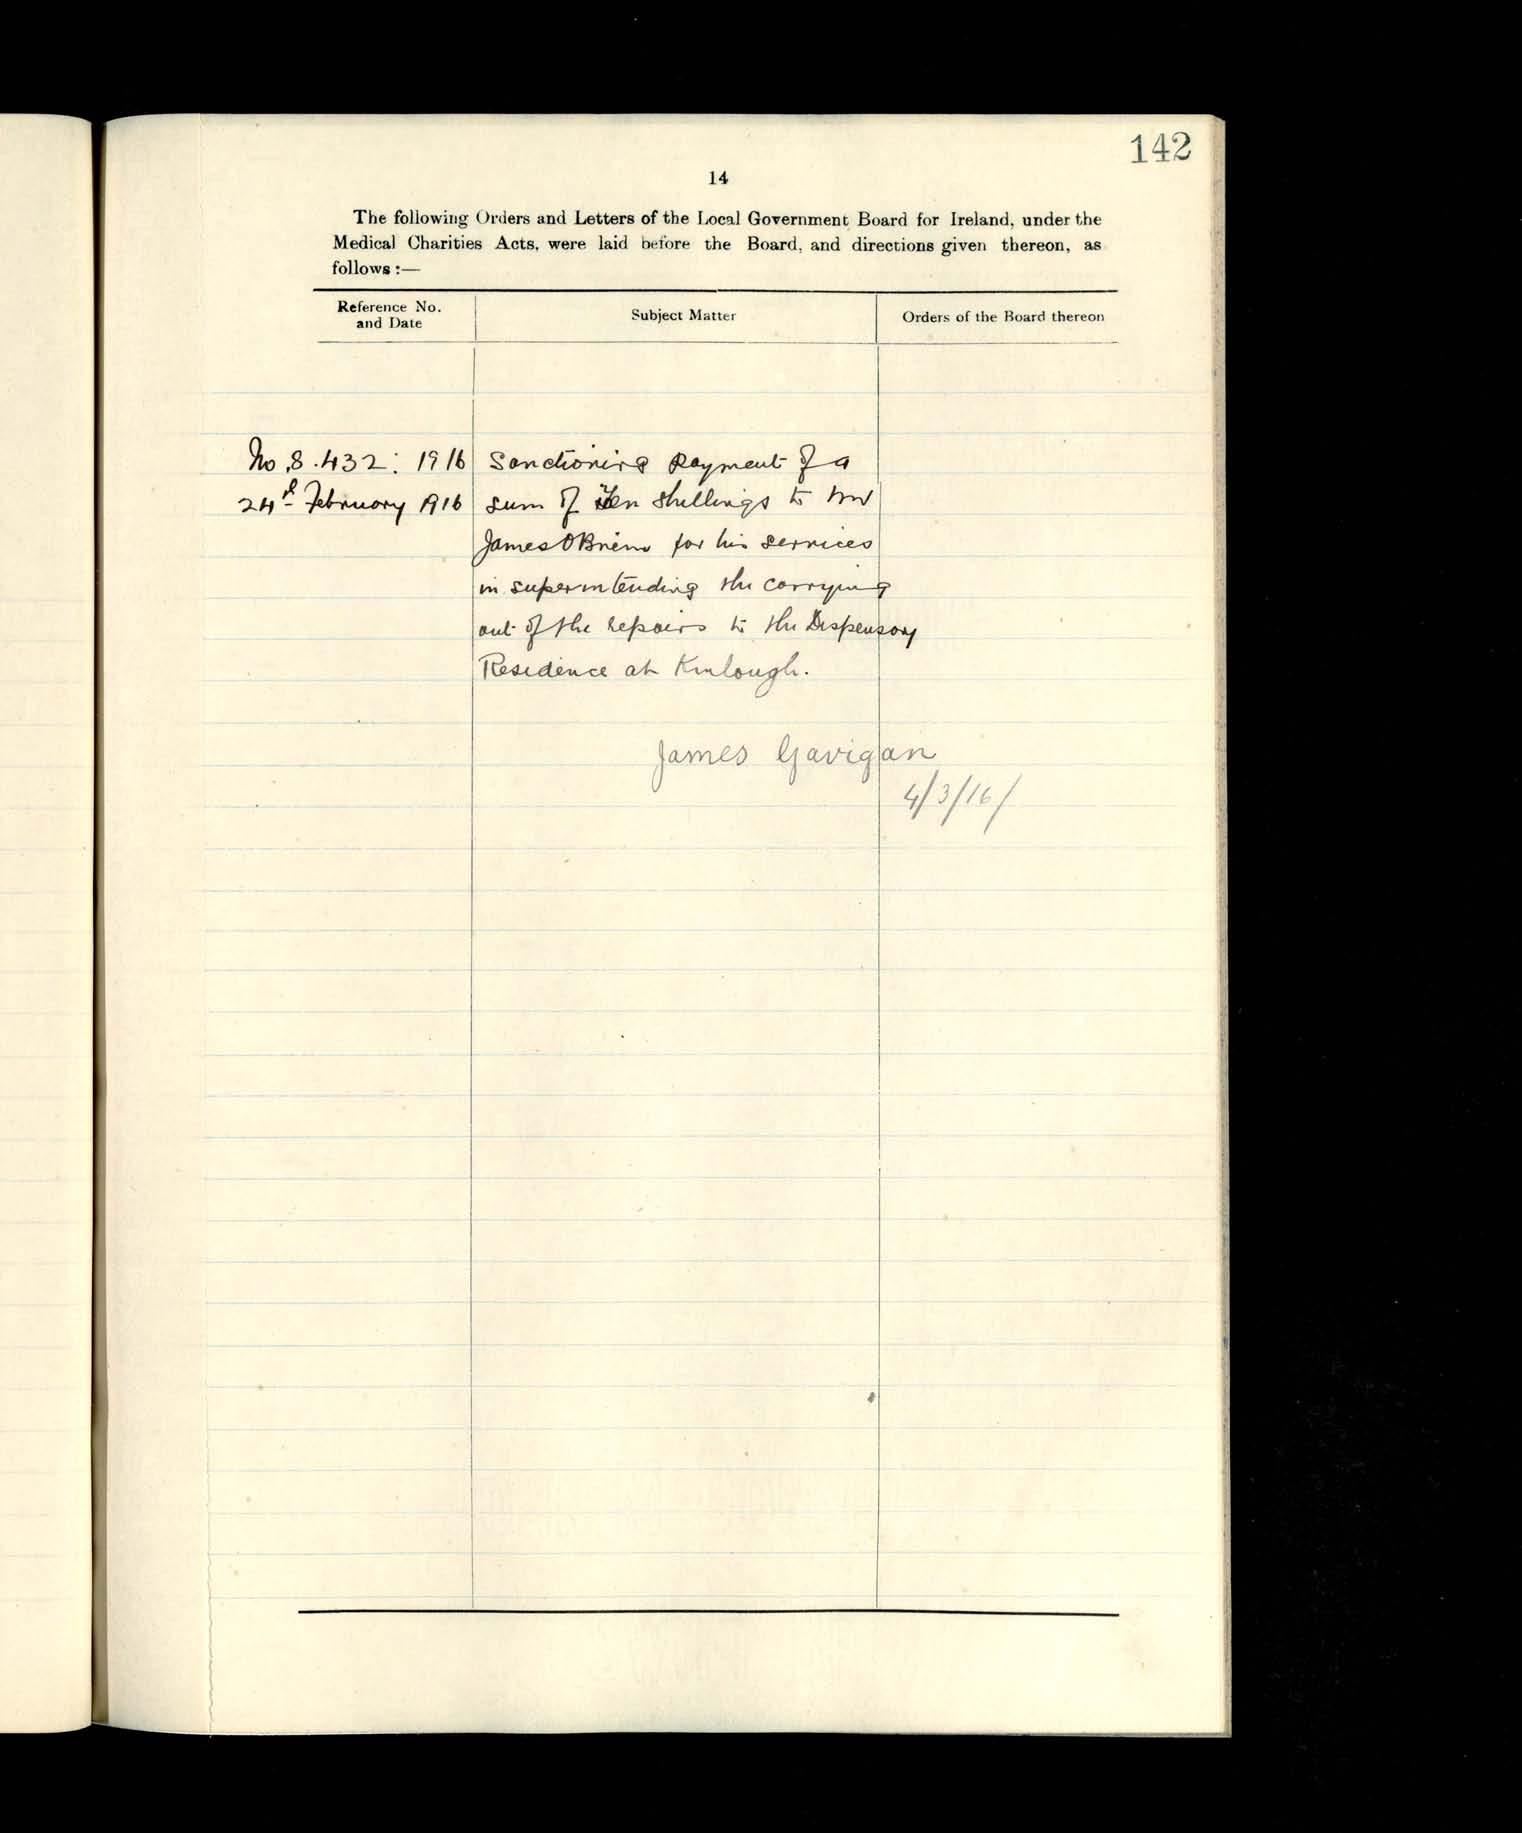 142
14
The following Orders and Letters of the Local Government Board for Ireland, under the
Medical Charities Acts, were laid before the Board, and directions given thereon, as
follows :—
Reference No.
and Date
Subject Matter
Orders of the Board thereon
No. 8.432: 1916
24th February 1916
Sanctioning payment of a
sum of Ten shillings to Mr
James O'Brien for his services
in superintending the carrying
out of the repairs to the Dispensary
Residence at Kinlough.
James Gavigan
4/3/16/